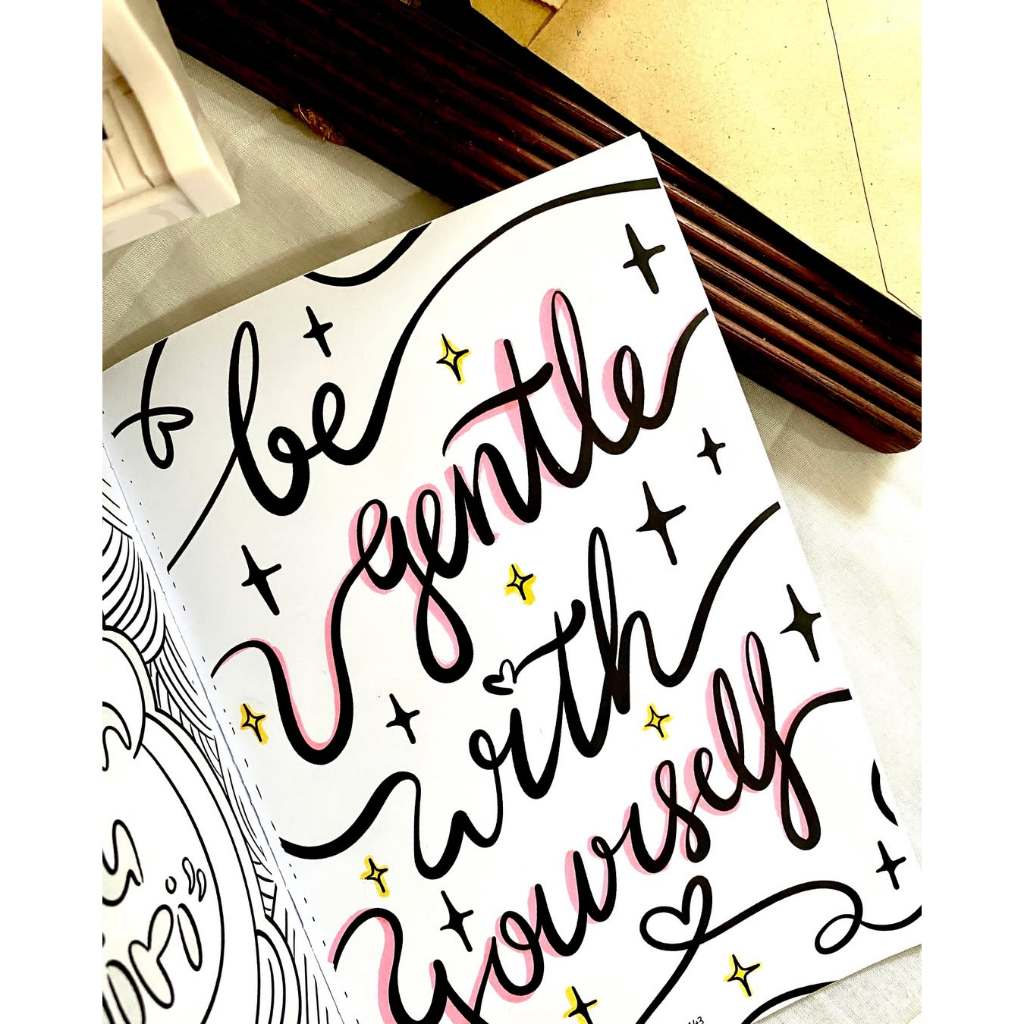 be
gentle
with
yourself